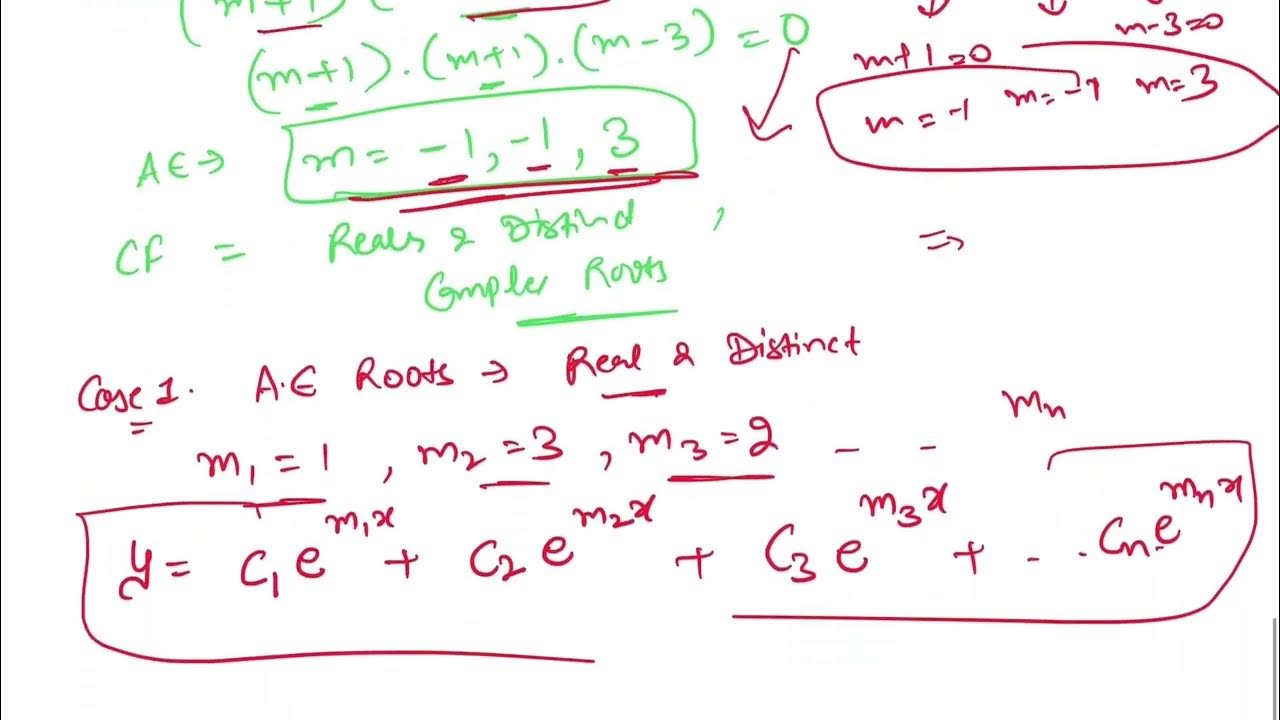 (m+1)
m-3=0
(m+1).(m+1).(m-3) = 0
m+1=0
m=-1 m=-1 m=3
AE→ m = -1, -1, 3
CF = Reals & Distinct ,
Complex Roots
⇒
Case 1. A.E Roots → Real & Distinct
m₁ = 1 , m₂ = 3 , m₃ = 2 - - mₙ
y = C₁e^{m₁x} + C₂e^{m₂x} + C₃e^{m₃x} + ... Cₙe^{mₙx}